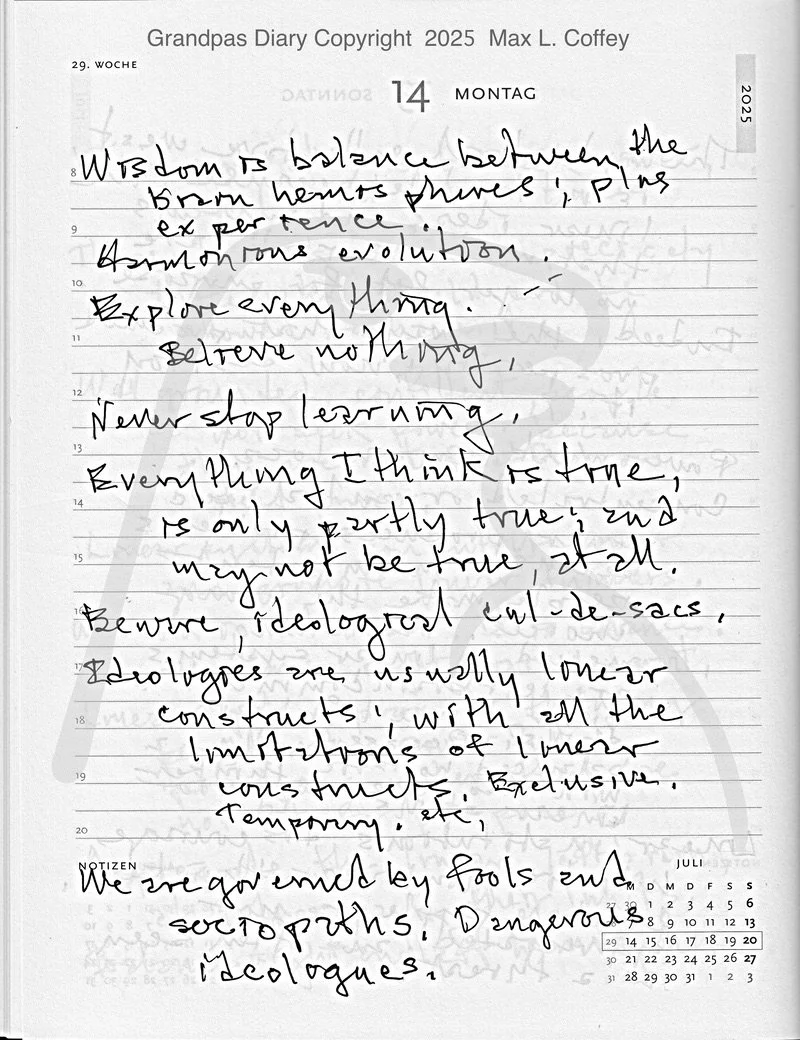 Grandpas Diary Copyright 2025 Max L. Coffey
29. WOCHE
14 MONTAG
2025
8 Wisdom is balance between the
brain hemispheres; plus
9 experience.
Harmonious evolution.
10 Explore everything.
11 Believe nothing.
12 Never stop learning.
13 Everything I think is true,
14 is only partly true; and
15 may not be true, at all.
16 Beware, ideological cul-de-sacs.
17 Ideologies are usually linear
18 constructs; with all the
limitations of linear
19 constructs. Exclusive.
Temporary. etc.
20
NOTIZEN
We are governed by fools and
sociopaths. Dangerous
ideologues.
JULI
M D M D F S S
27 30 1 2 3 4 5 6
7 8 9 10 11 12 13
29 14 15 16 17 18 19 20
30 21 22 23 24 25 26 27
31 28 29 30 31 1 2 3